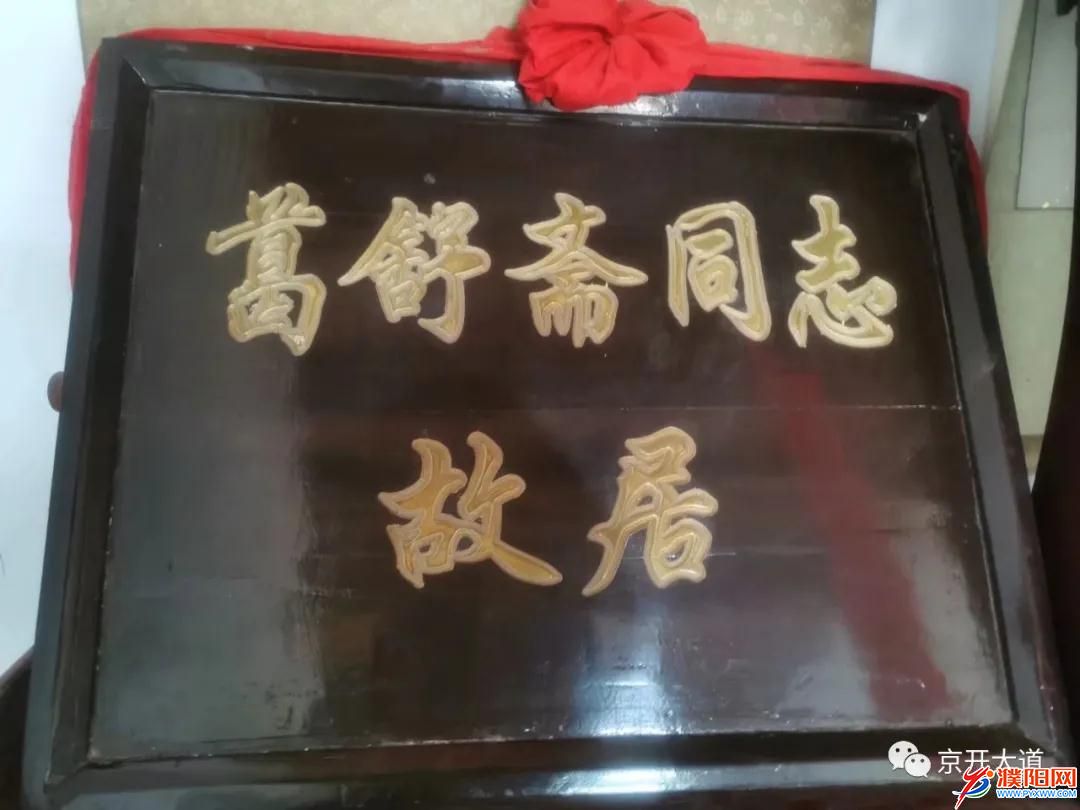 葛舒斋同志
故居
京开大道
濮阳网
www.pyxww.com